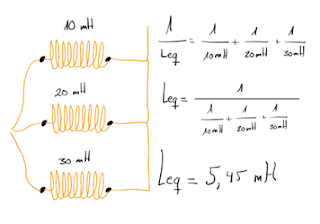 10 mH
20 mH
30 mH
1/Leq = 1/10mH + 1/20mH + 1/30mH
Leq = 1/(1/10mH + 1/20mH + 1/30mH)
Leq = 5,45 mH